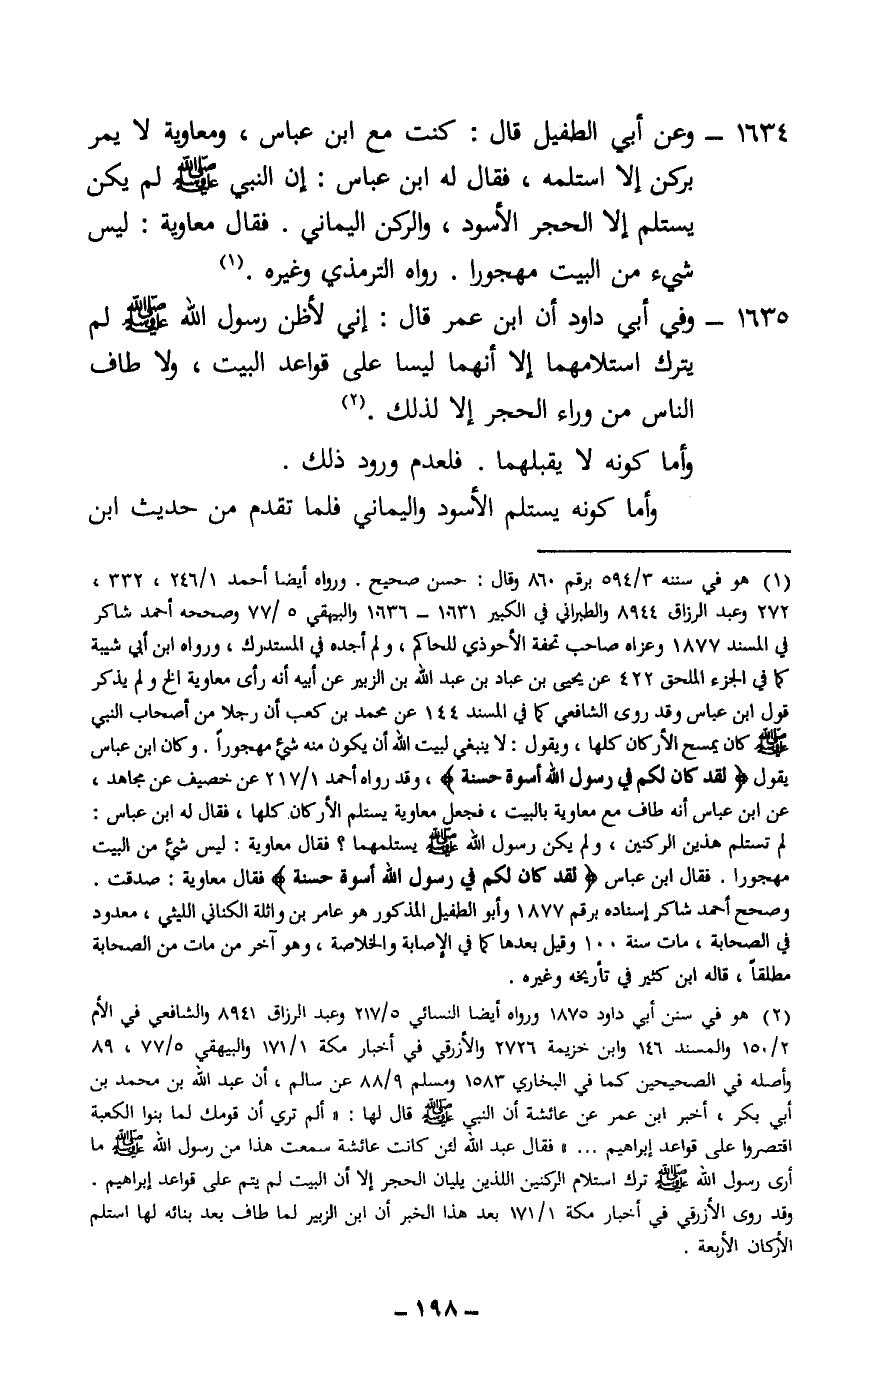 ١٦٣٤ ــ وعن أبي الطفيل قال : كنت مع ابن عباس ، ومعاوية لا يمر
بركن إلا استلمه ، فقال له ابن عباس : إن النبي ﷺ لم يكن
يستلم إلا الحجر الأسود ، والركن اليماني . فقال معاوية : ليس
شيء من البيت مهجورا . رواه الترمذي وغيره .(١)
١٦٣٥ ــ وفي أبي داود أن ابن عمر قال : إني لأظن رسول الله ﷺ لم
يترك استلامهما إلا أنهما ليسا على قواعد البيت ، ولا طاف
الناس من وراء الحجر إلا لذلك .(٢)
وأما كونه لا يقبلهما . فلعدم ورود ذلك .
وأما كونه يستلم الأسود واليماني فلما تقدم من حديث ابن
(١) هو في سننه ٥٩٤/٣ برقم ٨٦٠ وقال : حسن صحيح . ورواه أيضا أحمد ٢٤٦/١ ، ٣٣٢ ،
٢٧٢ وعبد الرزاق ٨٩٤٤ والطبراني في الكبير ١٠٦٣١ ــ ١٠٦٣٦ والبيهقي ٧٧/ ٥ وصححه أحمد شاكر
في المسند ١٨٧٧ وعزاه صاحب تحفة الأحوذي للحاكم ، ولم أجده في المستدرك ، ورواه ابن أبي شيبة
كما في الجزء الملحق ٤٢٢ عن يحيى بن عباد بن عبد الله بن الزبير عن أبيه أنه رأى معاوية الخ ولم يذكر
قول ابن عباس وقد روى الشافعي كما في المسند ١٤٤ عن محمد بن كعب أن رجلا من أصحاب النبي
ﷺ كان يمسح الأركان كلها ، ويقول : لا ينبغي لبيت الله أن يكون منه شئ مهجوراً . وكان ابن عباس
يقول ﴿ لقد كان لكم في رسول الله أسوة حسنة ﴾ ، وقد رواه أحمد ٢١٧/١ عن خصيف عن مجاهد ،
عن ابن عباس أنه طاف مع معاوية بالبيت ، فجعل معاوية يستلم الأركان كلها ، فقال له ابن عباس :
لم تستلم هذين الركنين ، ولم يكن رسول الله ﷺ يستلمهما ؟ فقال معاوية : ليس شئ من البيت
مهجورا . فقال ابن عباس ﴿ لقد كان لكم في رسول الله أسوة حسنة ﴾ فقال معاوية : صدقت .
وصحح أحمد شاكر إسناده برقم ١٨٧٧ وأبو الطفيل المذكور هو عامر بن واثلة الكناني الليثي ، معدود
في الصحابة ، مات سنة ١٠٠ وقيل بعدها كما في الإصابة والخلاصة ، وهو آخر من مات من الصحابة
مطلقاً ، قاله ابن كثير في تأريخه وغيره .
(٢) هو في سنن أبي داود ١٨٧٥ ورواه أيضا النسائي ٢١٧/٥ وعبد الرزاق ٨٩٤١ والشافعي في الأم
١٥٠/٢ والمسند ١٤٦ وابن خزيمة ٢٧٢٦ والأزرقي في أخبار مكة ١٧١/١ والبيهقي ٧٧/٥ ، ٨٩
وأصله في الصحيحين كما في البخاري ١٥٨٣ ومسلم ٨٨/٩ عن سالم ، أن عبد الله بن محمد بن
أبي بكر ، أخبر ابن عمر عن عائشة أن النبي ﷺ قال لها : « ألم تري أن قومك لما بنوا الكعبة
اقتصروا على قواعد إبراهيم ... » فقال عبد الله لئن كانت عائشة سمعت هذا من رسول الله ﷺ ما
أرى رسول الله ﷺ ترك استلام الركنين اللذين يليان الحجر إلا أن البيت لم يتم على قواعد إبراهيم .
وقد روى الأزرقي في أخبار مكة ١٧١/١ بعد هذا الخبر أن ابن الزبير لما طاف بعد بنائه لها استلم
الأركان الأربعة .
ــ ١٩٨ ــ